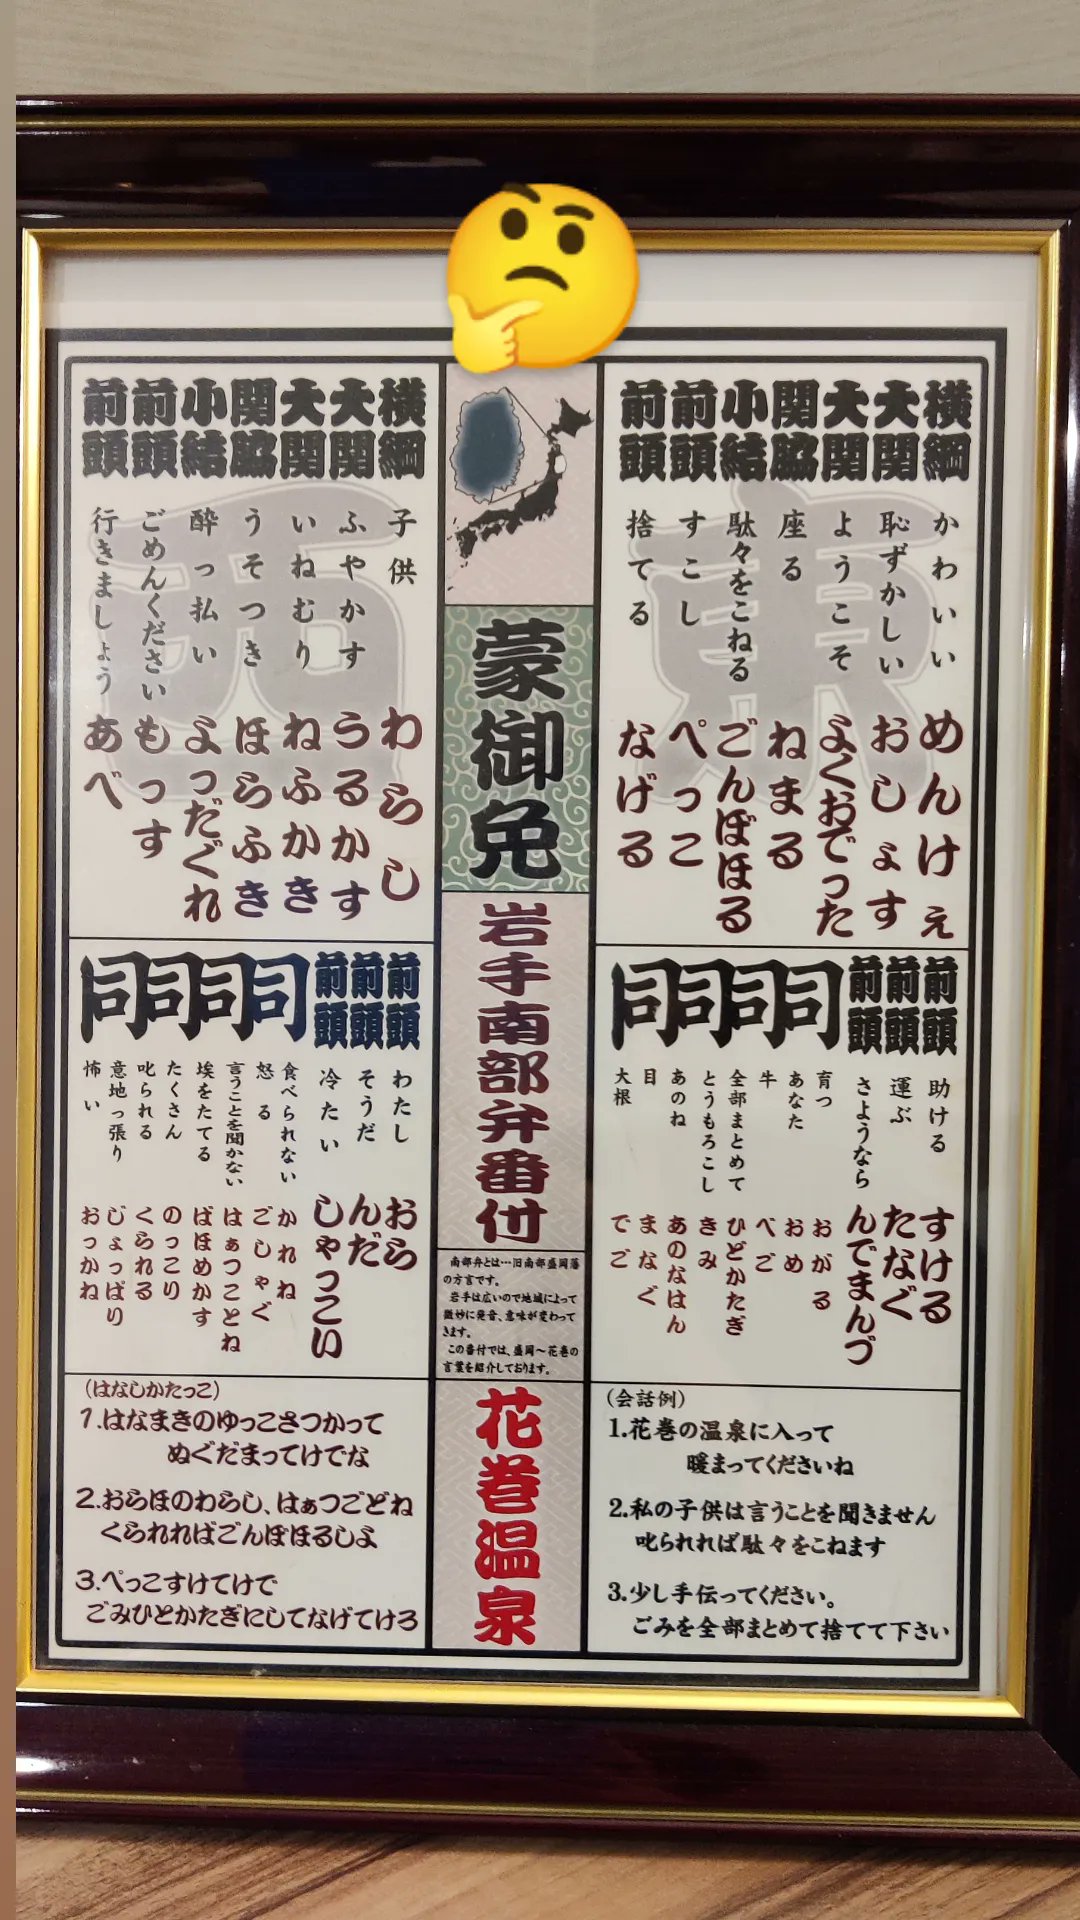 横綱 かわいい めんけぇ
大関 恥ずかしい おしょす
大関 ようこそ よくおでった
関脇 座る ねまる
小結 駄々をこねる ごんぼほる
前頭 すこし ぺっこ
前頭 捨てる なげる
東
前頭 助ける すける
前頭 運ぶ たなぐ
前頭 さようなら んでまんづ
同 育つ おがる
同 あなた おめ
同 牛 べご
同 全部まとめて ひどかたぎ
とうもろこし きみ
あのね あのなはん
目 まなぐ
大根 でご
蒙御免
岩手南部弁番付
南部弁とは…旧南部盛岡藩
の方言です。
岩手は広いので地域によって
微妙に発音、意味が変わって
きます。
この番付では、盛岡～花巻の
言葉を紹介しております。
花巻温泉
横綱 子供 わらし
大関 ふやかす うるかす
大関 いねむり ねふかき
関脇 うそつき ほらふき
小結 酔っ払い よっだぐれ
前頭 ごめんください もっす
前頭 行きましょう あべ
西
前頭 わたし おら
前頭 そうだ んだ
前頭 冷たい しゃっこい
同 食べられない かれね
同 怒る ごしゃぐ
同 言うことを聞かない はぁつことね
同 埃をたてる ばほめかす
たくさん のっこり
叱られる くられる
意地っ張り じょっぱり
怖い おっかね
(はなしかたっこ)
1.はなまきのゆっこさつかって
ぬぐだまってけでな
2.おらほのわらし、はぁつごどね
くられればごんぼほるしよ
3.ぺっこすけてけで
ごみひとかたぎにしてなげてけろ
(会話例)
1.花巻の温泉に入って
暖まってくださいね
2.私の子供は言うことを聞きません
叱られれば駄々をこねます
3.少し手伝ってください。
ごみを全部まとめて捨てて下さい